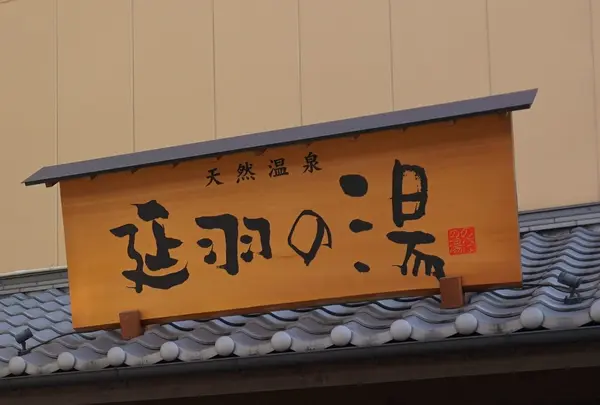 天然温泉
延羽の湯